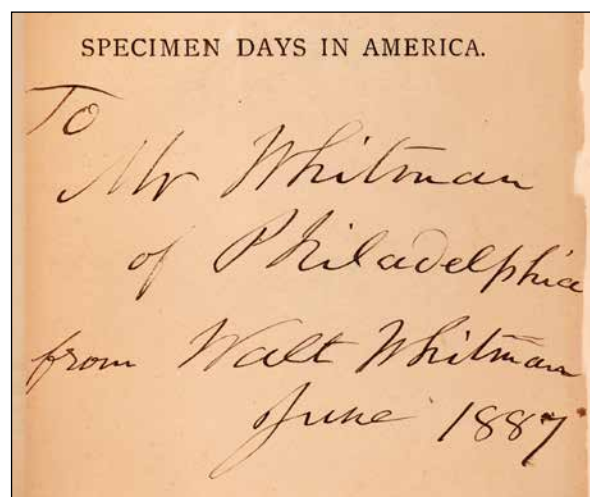 SPECIMEN DAYS IN AMERICA.
To
Mr Whitman
of Philadelphia
from Walt Whitman
June 1887